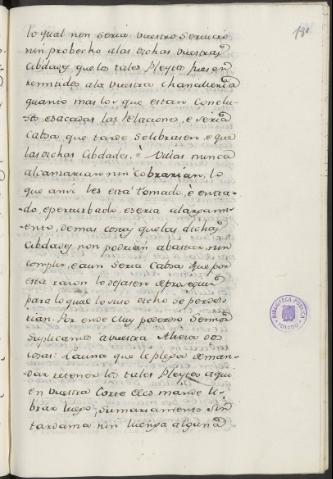 lo qual non seria vuestro servicio
nin probecho a las dichas vuestras
Cibdades que los tales Pleytos fuesen
remitidos a la vuestra chancilleria
quanto mas los que estan conclu-
sos e sacadas las relaciones, e seria
Cabsa que tarde se librasen e que
las dichas Cibdades, e Villas nunca
alcanzarian nin Cobrarian, lo
que ansi les esta tomado, e entra-
do, e perturbado, e seria alargami-
ento, demas costas que las dichas
Cibdades non podrian abastar nin
complir, e aun seria Cabsa que por
esta razon lo dejasen de proseguir
para lo qual lo suso dicho se perde-
rian. Por ende muy poderoso Señor
Suplicamos a vuestra Alteza dos
cosas: La una que le plega de man-
dar retener los tales Pleytos aqui
en vuestra Corte e les mande li-
brar luego, sumariamente sin
tardanza nin luenga alguna
191
BIBLIOTECA PUBLICA
TOLEDO